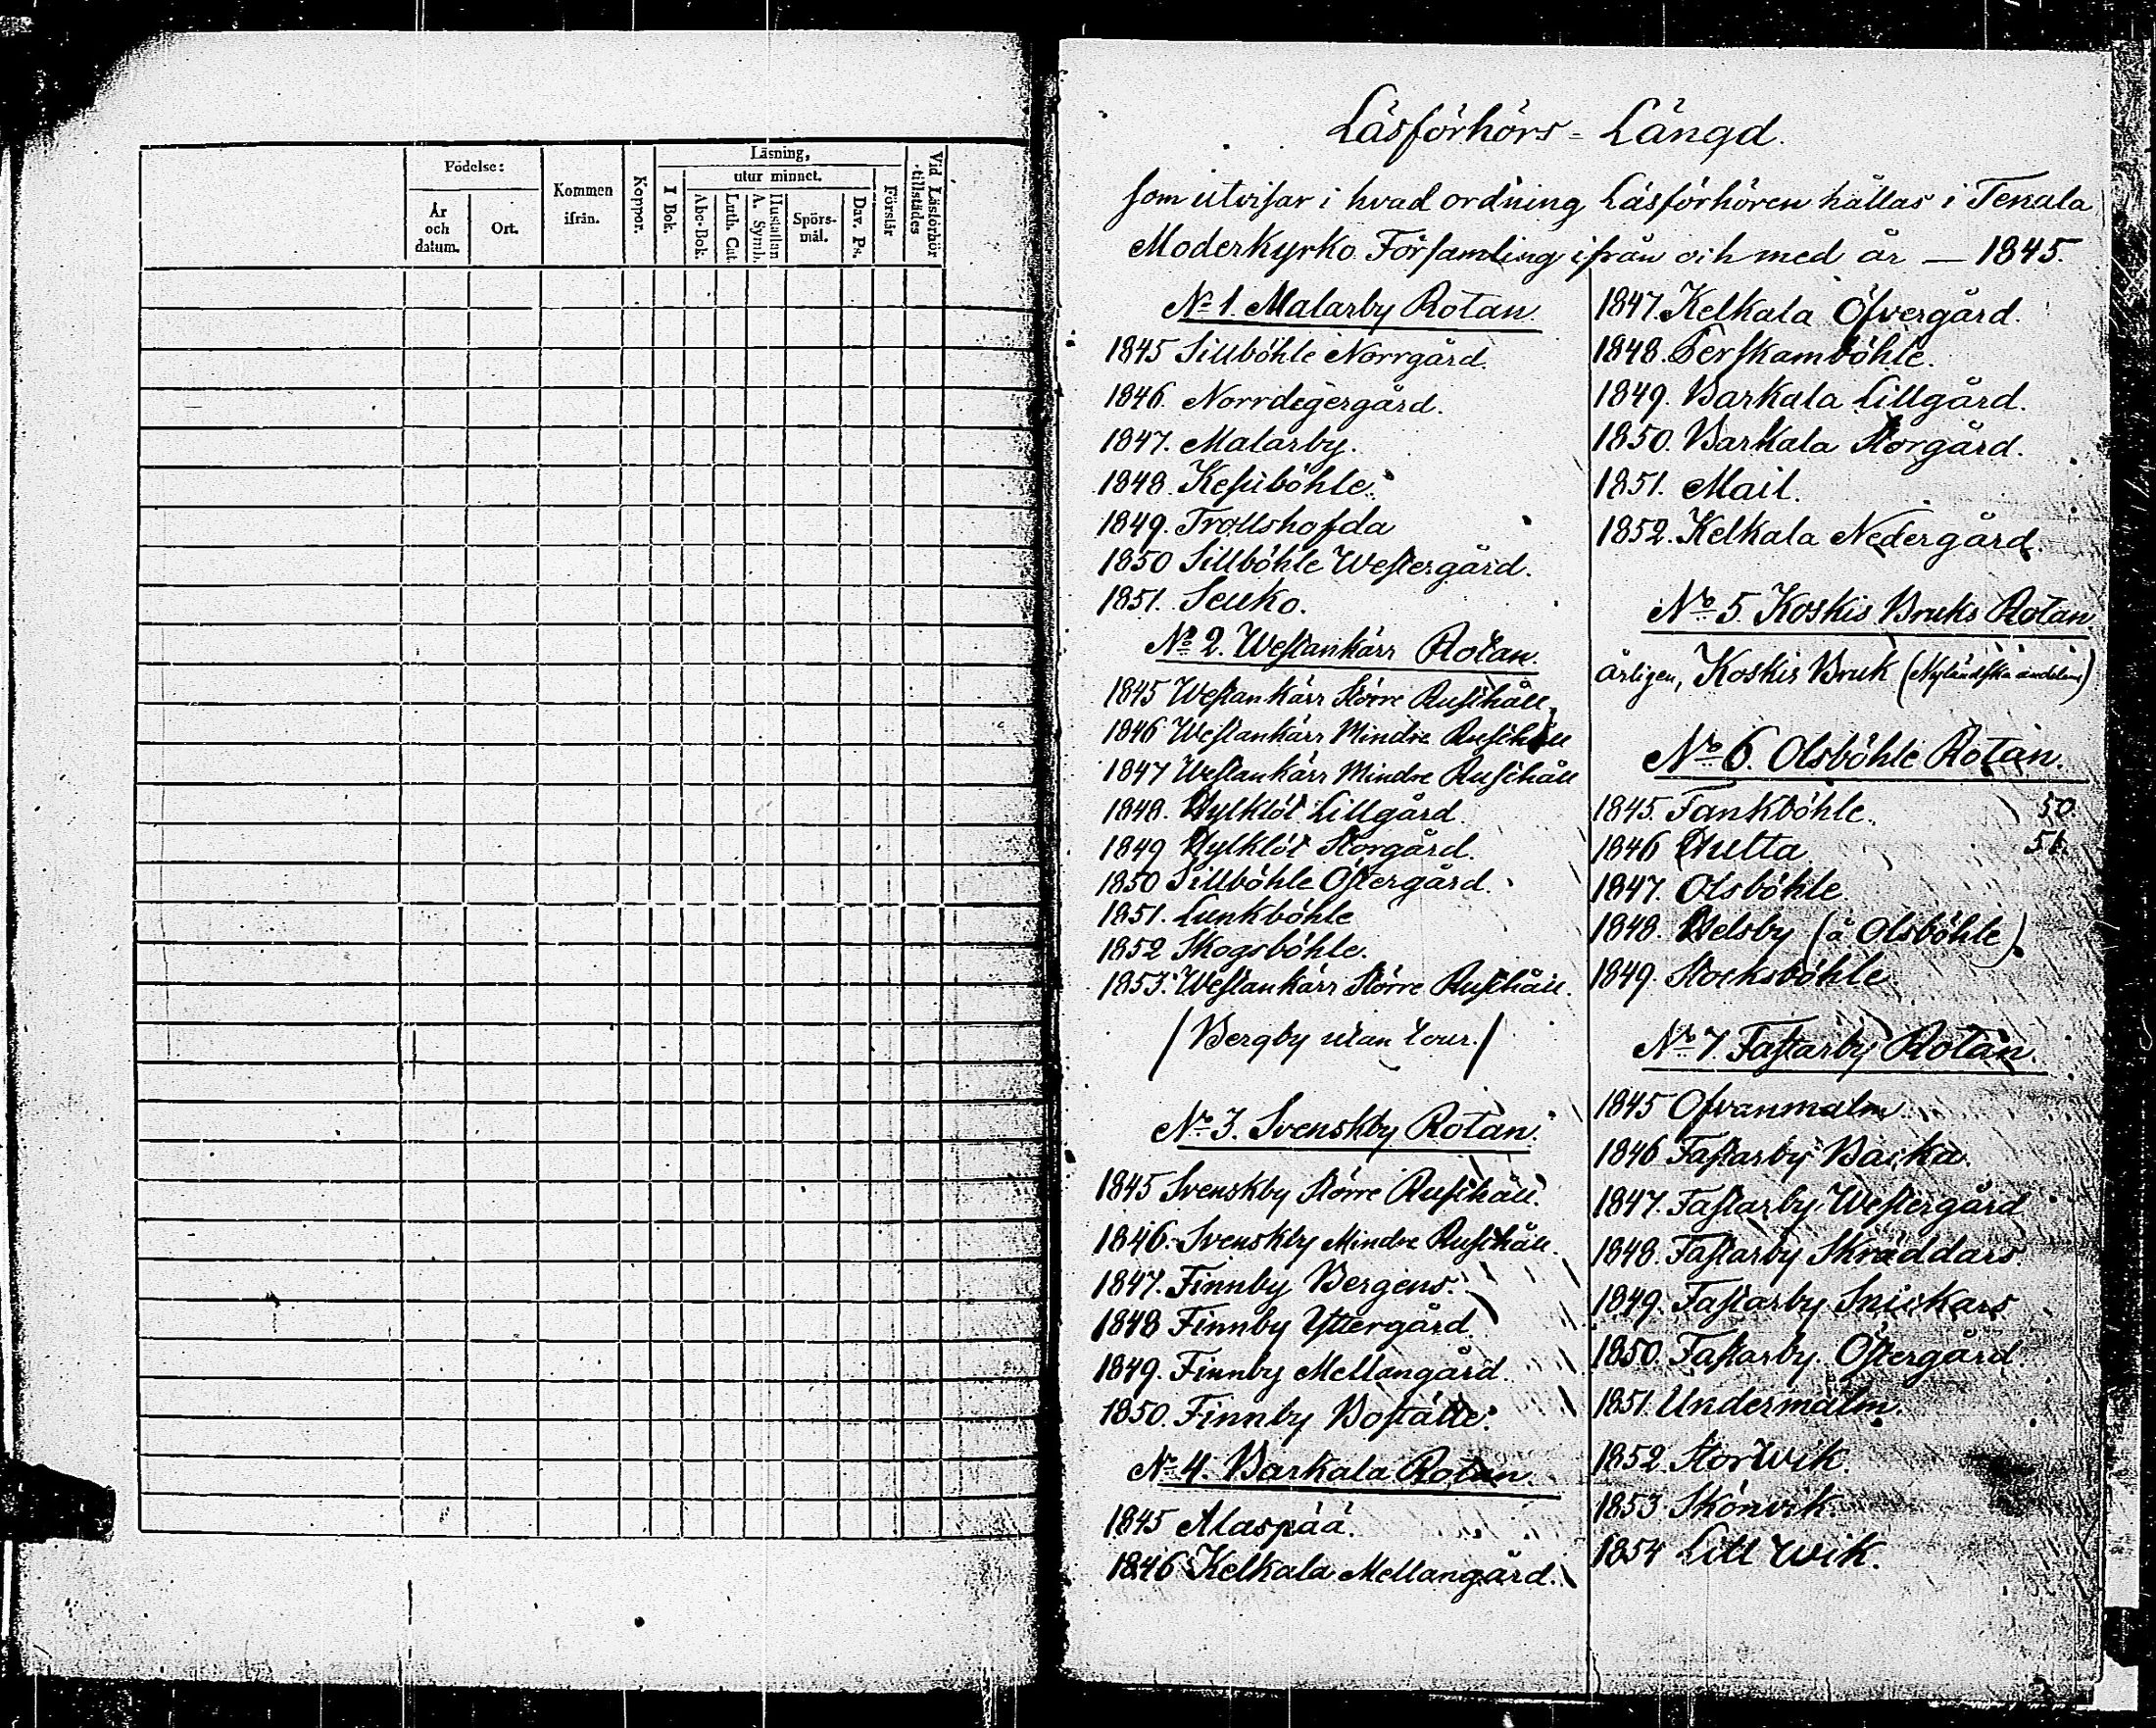 Födelse:
År och datum.
Ort.
Kommen ifrån.
Koppor.
Läsning,
I Bok.
utur minnet.
Abc-Bok.
Luth. Cat.
Hustaflan A. Symb.
Spörs-mål.
Dav. Ps.
Förstår
Vid Läsförhör tillstädes
Läsförhörs-Längd.
som utvisar i hvad ordning Läsförhören hållas i Tenala
Moderkyrko Församling ifrån och med år — 1845.
No 1. Malarby Rotan.
1845 Sillböhle Norrgård.
1846. Norrdegergård.
1847. Malarby.
1848. Kesuböhle.
1849. Trollshofda
1850 Sillböhle Westergård.
1851. Seuko.
No 2. Westankärr Rotan.
1845 Westankärr Större Rusthåll
1846 Westankärr Mindre Rusthåll
1847 Westankärr Mindre Rusthåll
1848. Hylklöt Lillgård.
1849 Hylklöt Storgård.
1850 Sillböhle Östergård.
1851. Lunkböhle
1852 Skogsböhle.
1853. Westankärr Större Rusthåll.
/Bergby utan tour./
No 3. Svenskby Rotan.
1845 Svenskby Större Rusthåll.
1846. Svenskby Mindre Rusthåll.
1847. Finnby Bergens.
1848 Finnby Yttergård.
1849. Finnby Mellangård.
1850. Finnby Boställe.
No 4. Barkala Rotan.
1845 Alaspää.
1846 Kelkala Mellangård.
1847. Kelkala Öfvergård.
1848. Perskamböhle.
1849. Barkala Lillgård.
1850. Barkala Storgård.
1851. Mail.
1852. Kelkala Nedergård.
No 5. Koskis Bruks Rotan
årligen, Koskis Bruk (Nyländska andelen)
No 6. Olsböhle Rotan.
1845. Fankböhle. 50.
1846 Hulta 51.
1847. Olsböhle
1848. Delsby (å Olsböhle).
1849. Stocksböhle
No 7. Fastarby Rotan.
1845 Ofvanmalm
1846 Fastarby Backa.
1847. Fastarby Westergård
1848. Fastarby Skräddars.
1849. Fastarby Snickars
1850. Fastarby Östergård.
1851. Undermalm.
1852. Storwik.
1853 Skönvik.
1854 Lill wik.